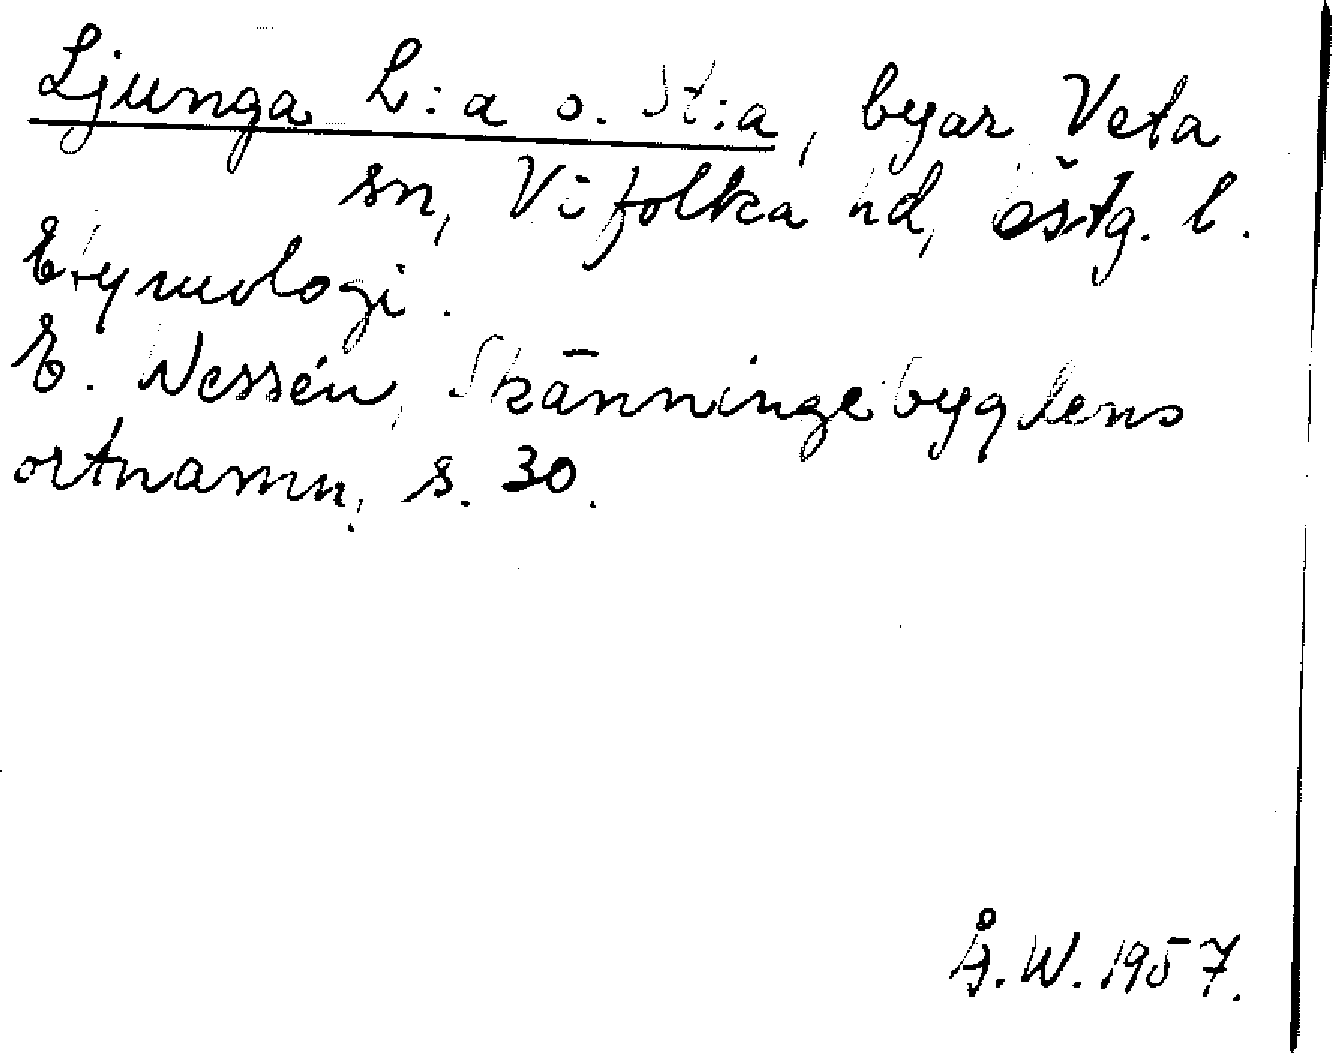 Ljunga L:a o. St:a, byar Veta
sn, Vifolka hd, Östg. l.
Etymologi.
E. Nessén, Skänningebygdens
ortnamn, s. 30.
Å.W. 1957.